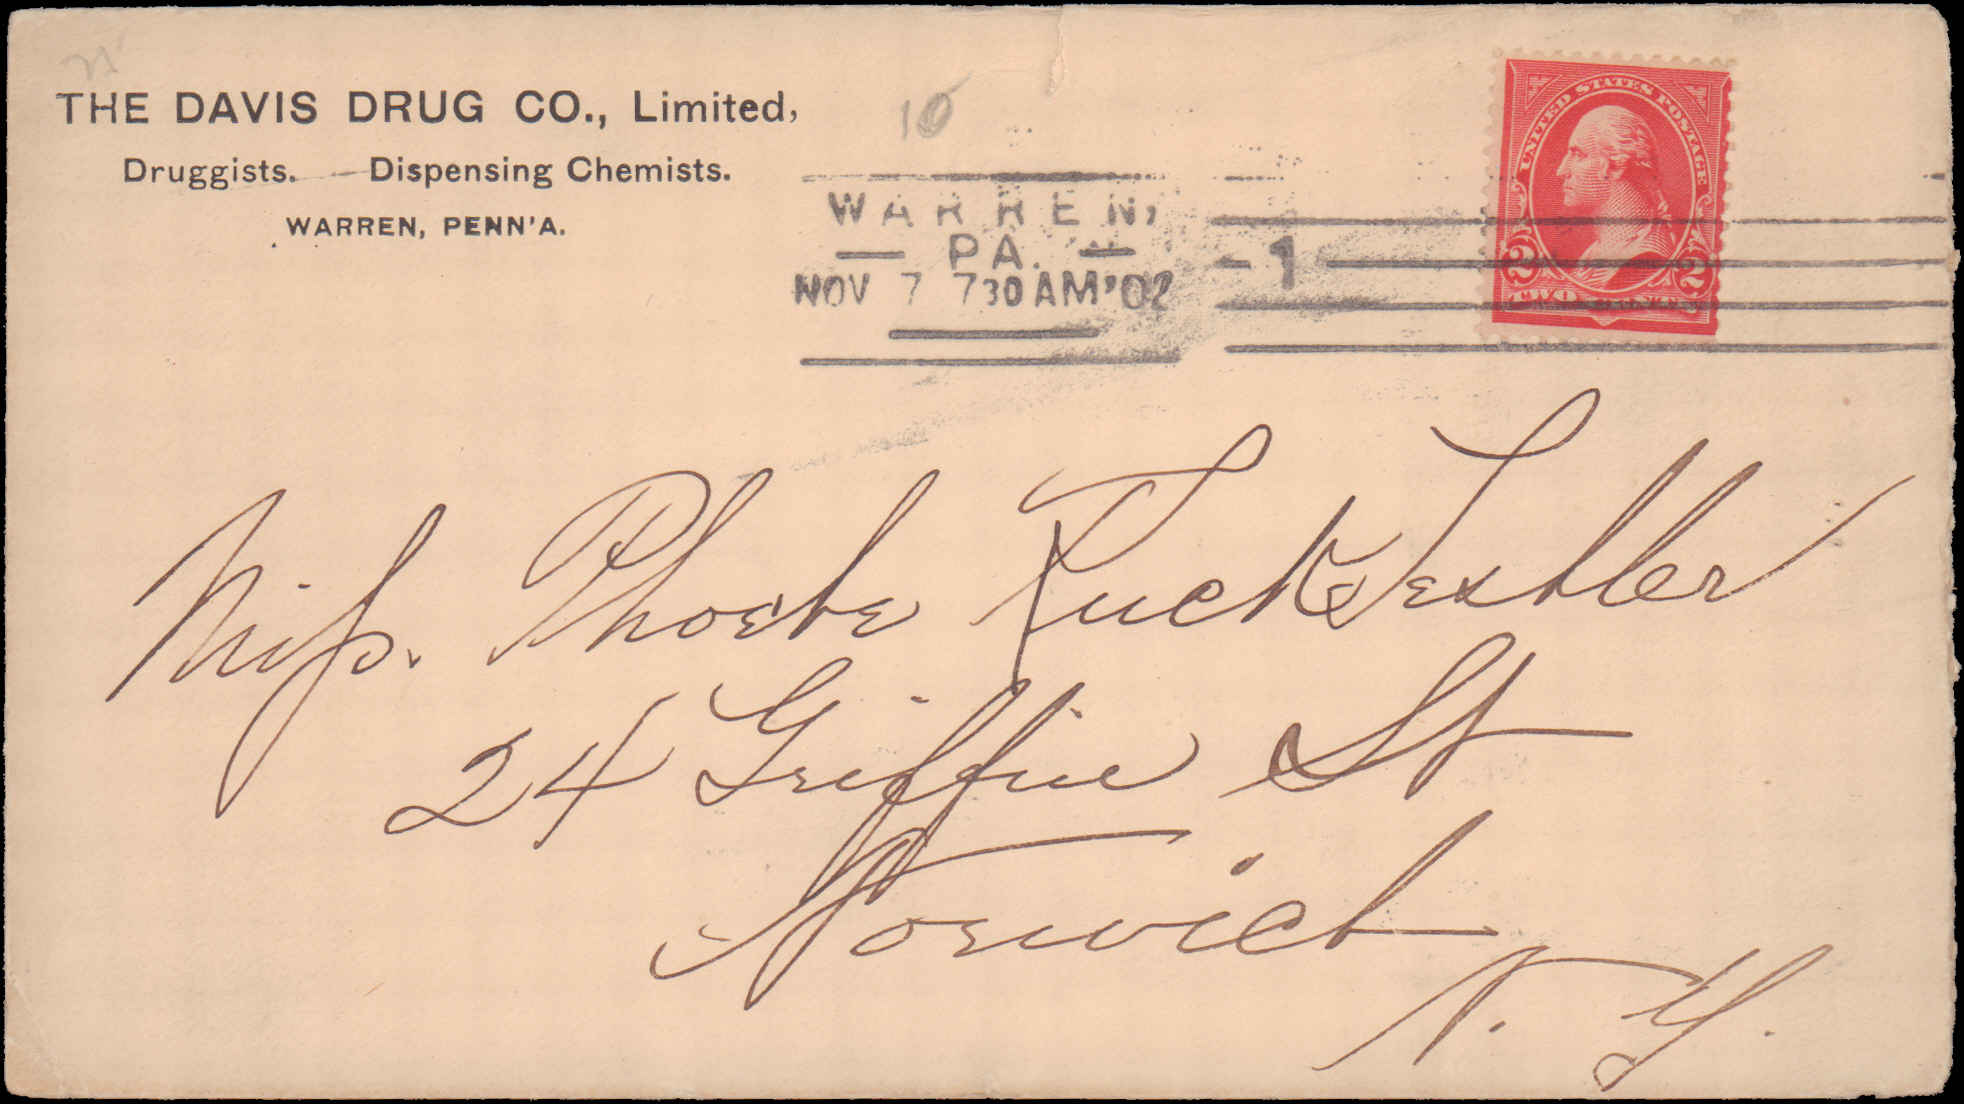 THE DAVIS DRUG CO., Limited,
Druggists. — Dispensing Chemists.
WARREN, PENN'A.
10
WARREN,
PA.
NOV 7 730 AM '02
1
UNITED STATES POSTAGE
2 2
TWO CENTS
Miss. Phoebe
24 Griffin St
Norwich
N. Y.